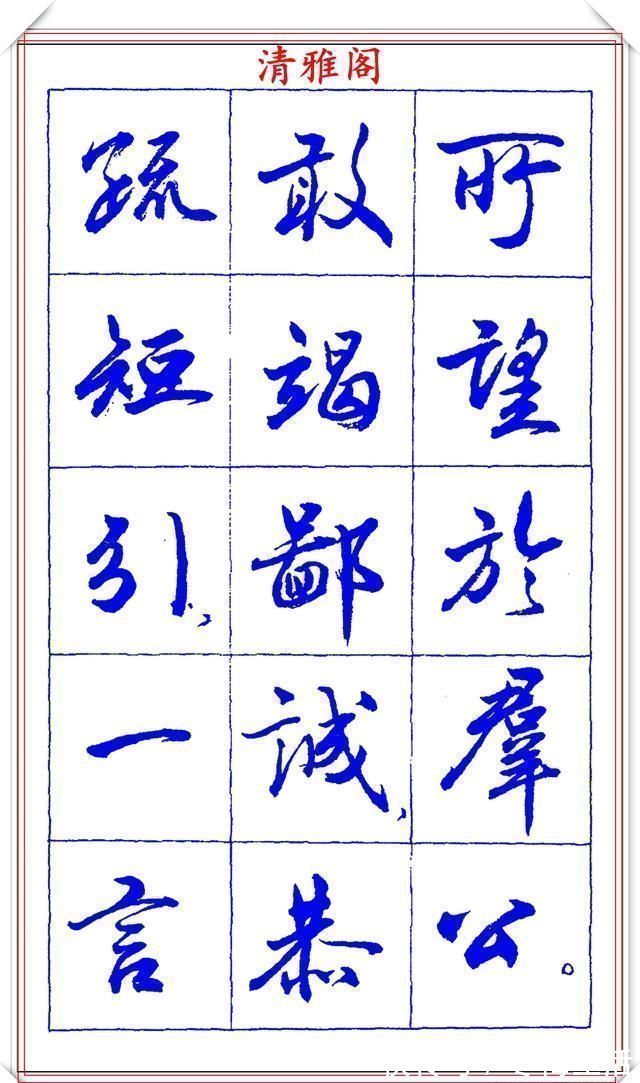 清雅阁
所望於羣公。
敢竭鄙誠,恭
疏短引,一言